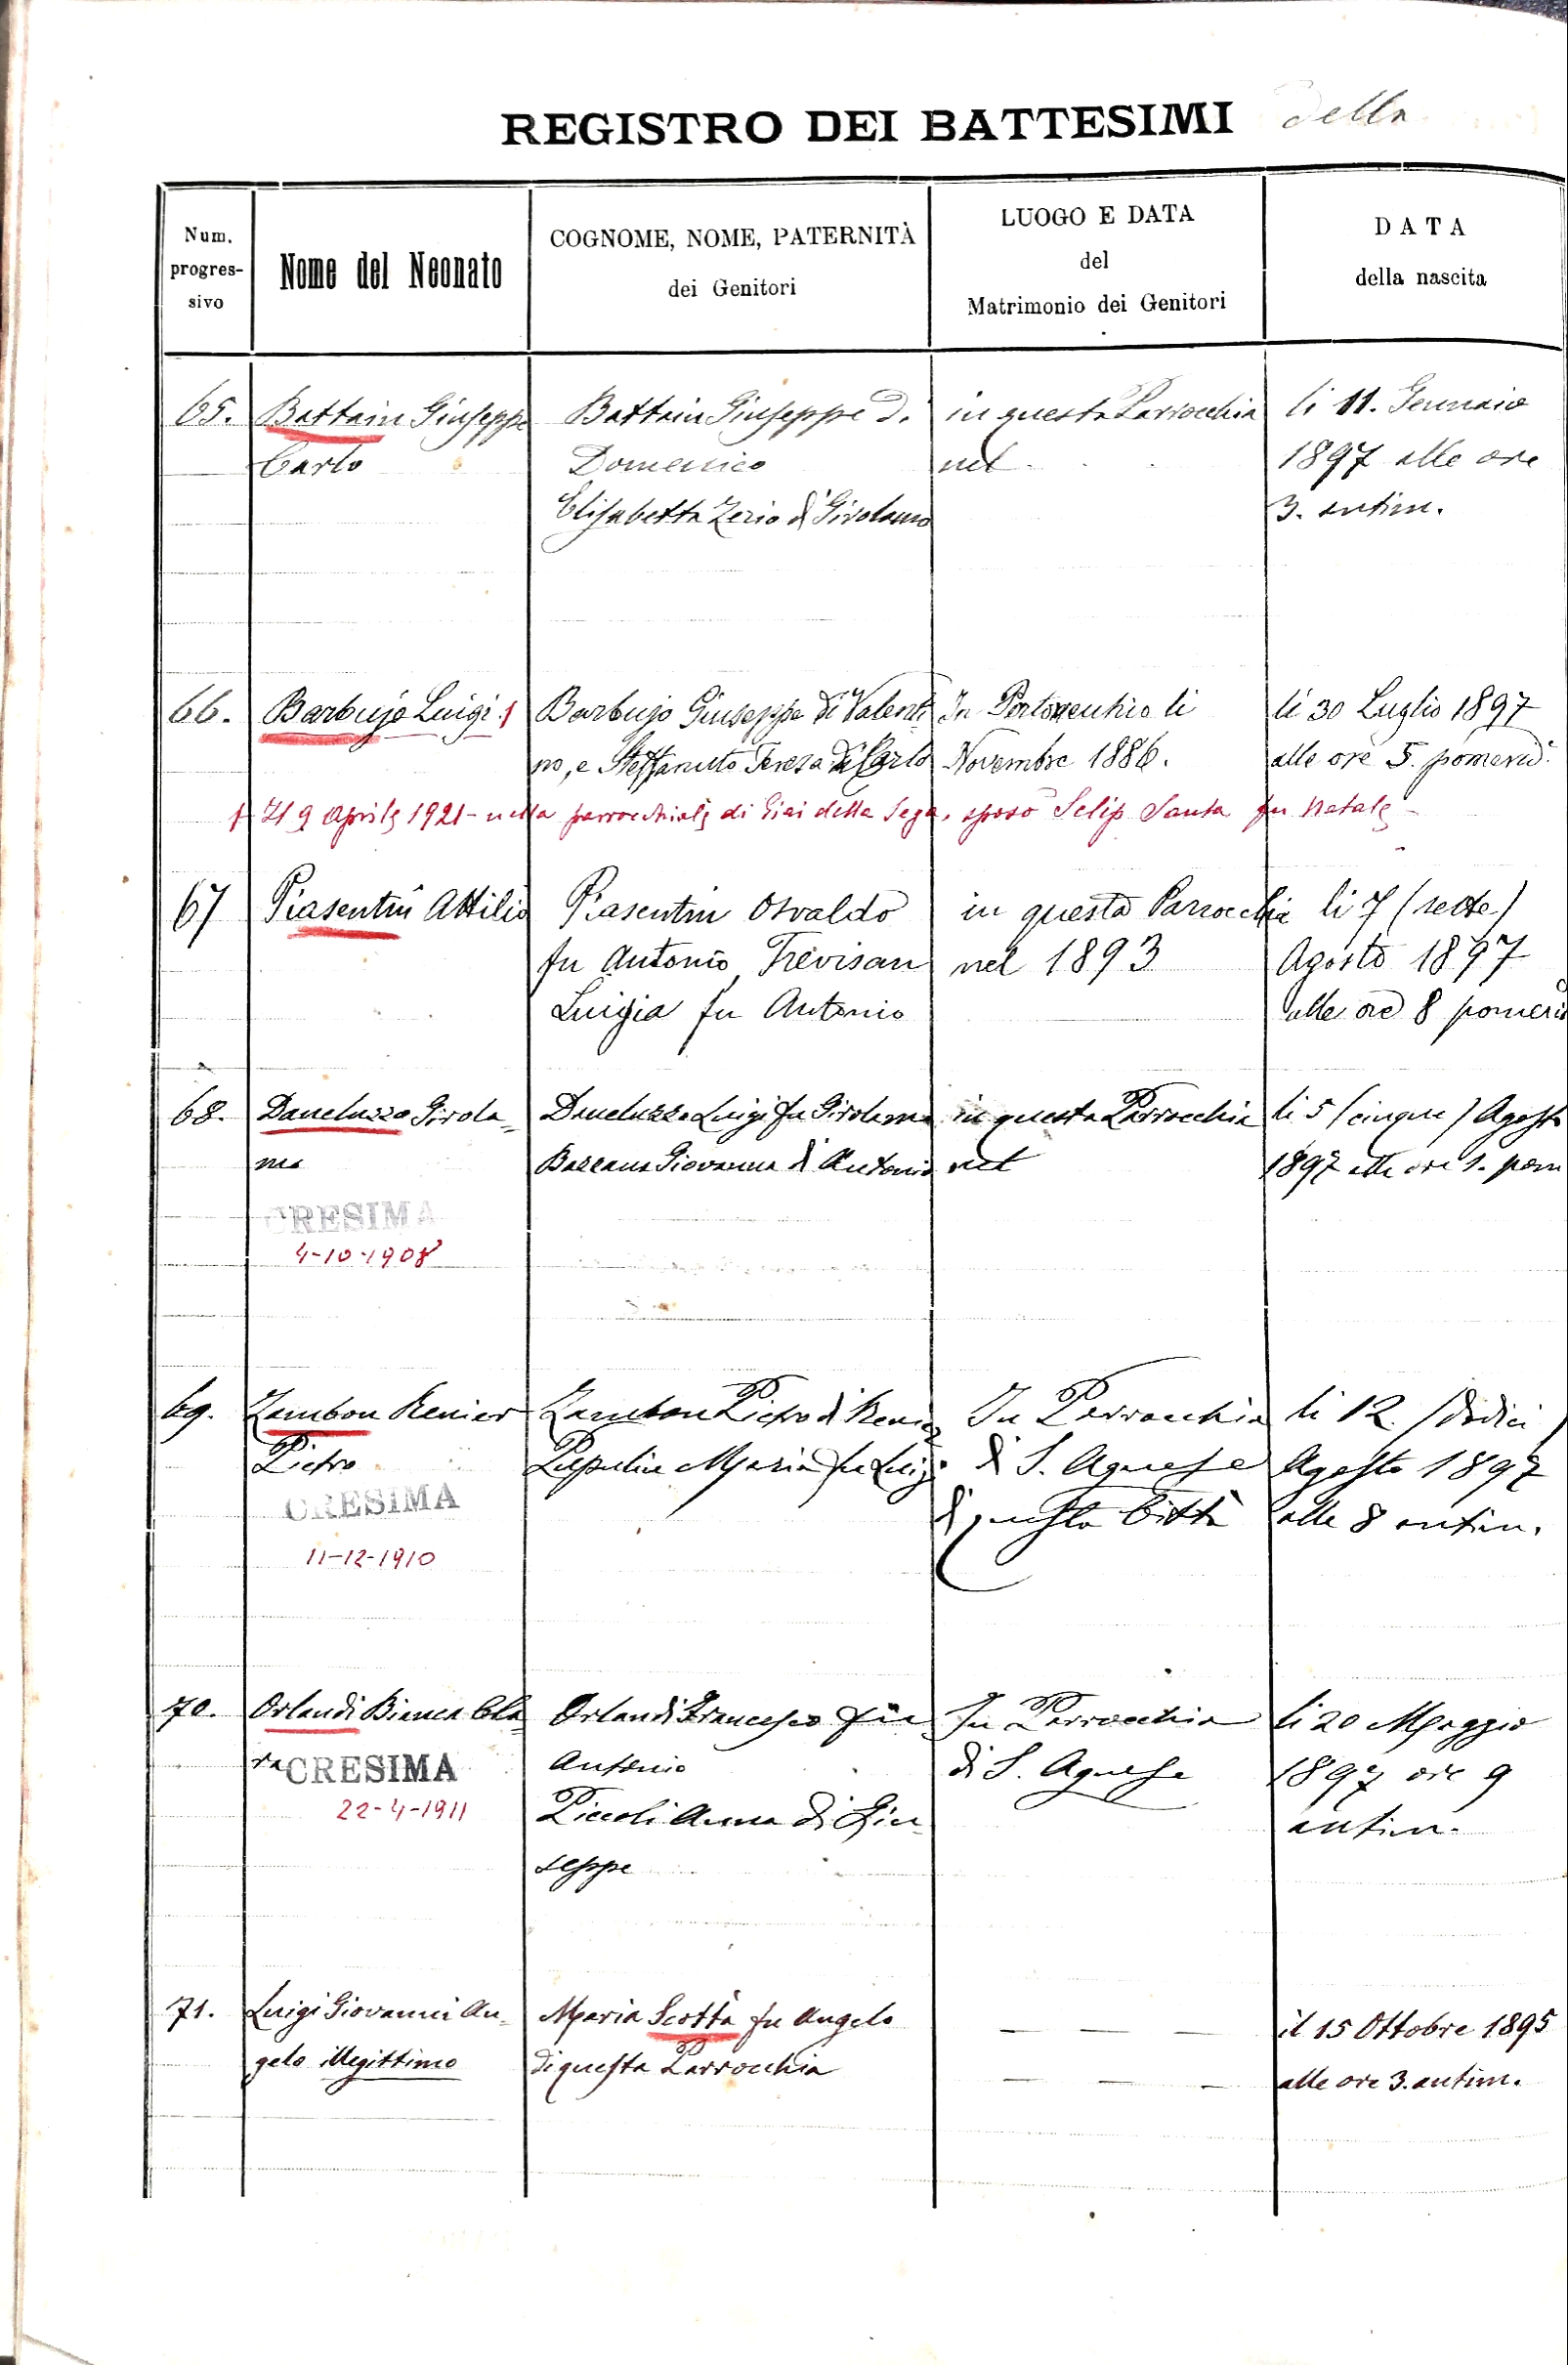 REGISTRO DEI BATTESIMI della
Num. progres- sivo
Nome del Neonato
COGNOME, NOME, PATERNITÀ
dei Genitori
LUOGO E DATA
del
Matrimonio dei Genitori
DATA
della nascita
65. Battain Giuseppe Battain Giuseppe d. in questa Parrocchia li 11. Gennaio
Carlo Domenico nel 1897 alle ore
Elisabetta Zerio di Girolamo 3. antim.
66. Barbujo Luigi Barbujo Giuseppe di Valenti In Portovecchio li li 30 Luglio 1897
no, e Steffanutto Teresa di Carlo Novembre 1886. alle ore 5. pomerid.
Il 9 Aprile 1921 - nella parrocchiale di Giai della Sega, sposò Selip Santa fu Natale
67 Piasentin Attilio Piasentin Osvaldo in questa Parrocchia li 7 (sette)
fu Antonio, Trevisan nel 1893 Agosto 1897
Luigia fu Antonio alle ore 8 pomerid
68. Daneluzzo Girola= Daneluzzo Luigi fu Girolamo in questa Parrocchia li 5 (cinque) Agosto
mo Giovanna di Antonio nel 1897 alle ore 1. pom
CRESIMA
4-10-1908
69. Zambon Renier Zambon Pietro di Renier In Parrocchia li 12. (dodici)
Pietro Maria fu Luigi di S. Agnese Agosto 1897
CRESIMA di questa Città alle 8 antim.
11-12-1910
70. Orlandi Bianca Cla= Orlandi Francesco fu In Parrocchia li 20 Maggio
ra CRESIMA Antonio di S. Agnese 1897 ore 9
22-4-1911 Piccoli Anna di Giu= antim.
seppe
71. Luigi Giovanni An= Maria Scottà fu Angelo — — — il 15 Ottobre 1895
gelo illegittimo di questa Parrocchia — — — alle ore 3. antim.